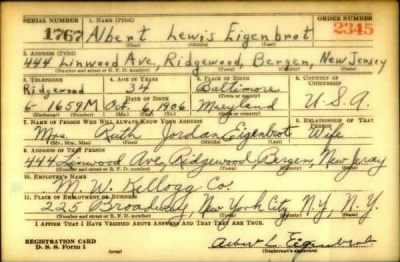 SERIAL NUMBER 1. NAME (Print) ORDER NUMBER
1767 Albert Lewis Eigenbrot 2345
(First) (Middle) (Last)
2. ADDRESS (Print)
444 Linwood Ave, Ridgewood, Bergen, New Jersey
(Number and street or R. F. D. number) (Town) (County) (State)
3. TELEPHONE 4. AGE IN YEARS 5. PLACE OF BIRTH 6. COUNTRY OF CITIZENSHIP
Ridgewood 34 Baltimore
DATE OF BIRTH (Town or county)
6-1659M Oct. 6, 1906 Maryland U.S.A.
(Mo.) (Day) (Yr.) (State or country)
7. NAME OF PERSON WHO WILL ALWAYS KNOW YOUR ADDRESS 8. RELATIONSHIP OF THAT PERSON
Mrs. Ruth Jordan Eigenbrot Wife
(Mr., Mrs., Miss) (First) (Middle) (Last)
9. ADDRESS OF THAT PERSON
444 Linwood Ave, Ridgewood Bergen, New Jersey
(Number and street or R. F. D. number) (Town) (County) (State)
10. EMPLOYER'S NAME
M. W. Kellogg Co.
11. PLACE OF EMPLOYMENT OR BUSINESS
225 Broadway, New York City, NY, N.Y.
(Number and street or R. F. D. number) (Town) (County) (State)
I AFFIRM THAT I HAVE VERIFIED ABOVE ANSWERS AND THAT THEY ARE TRUE.
REGISTRATION CARD
D. S. S. Form 1 Albert L. Eigenbrot
(Registrant's signature)